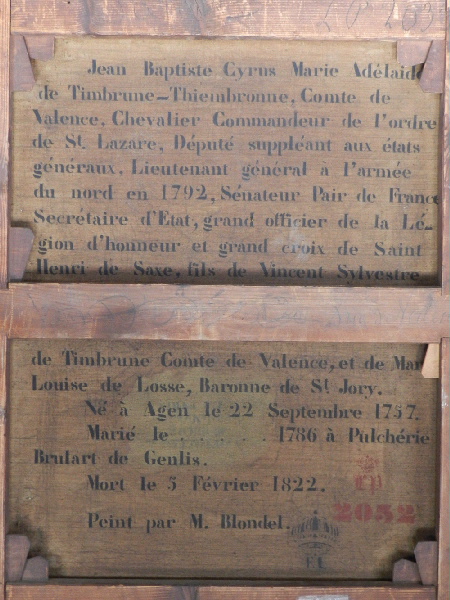 Jean Baptiste Cyrus Marie Adélaide
de Timbrune-Thiembronne, Comte de
Valence, Chevalier Commandeur de l'ordre
de St. Lazare, Député suppléant aux états
généraux, Lieutenant général à l'armée
du nord en 1792, Sénateur Pair de France
Secrétaire d'Etat, grand officier de la Lé-
gion d'honneur et grand croix de Saint
Henri de Saxe, fils de Vincent Sylvestre
de Timbrune Comte de Valence, et de
Louise de Losse, Baronne de St. Jory.
Né à Agen le 22 Septembre 1757.
Marié le . . . . . . 1786 à Pulchérie
Brulart de Genlis.
Mort le 5 Février 1822.
2052
Peint par M. Blondel.